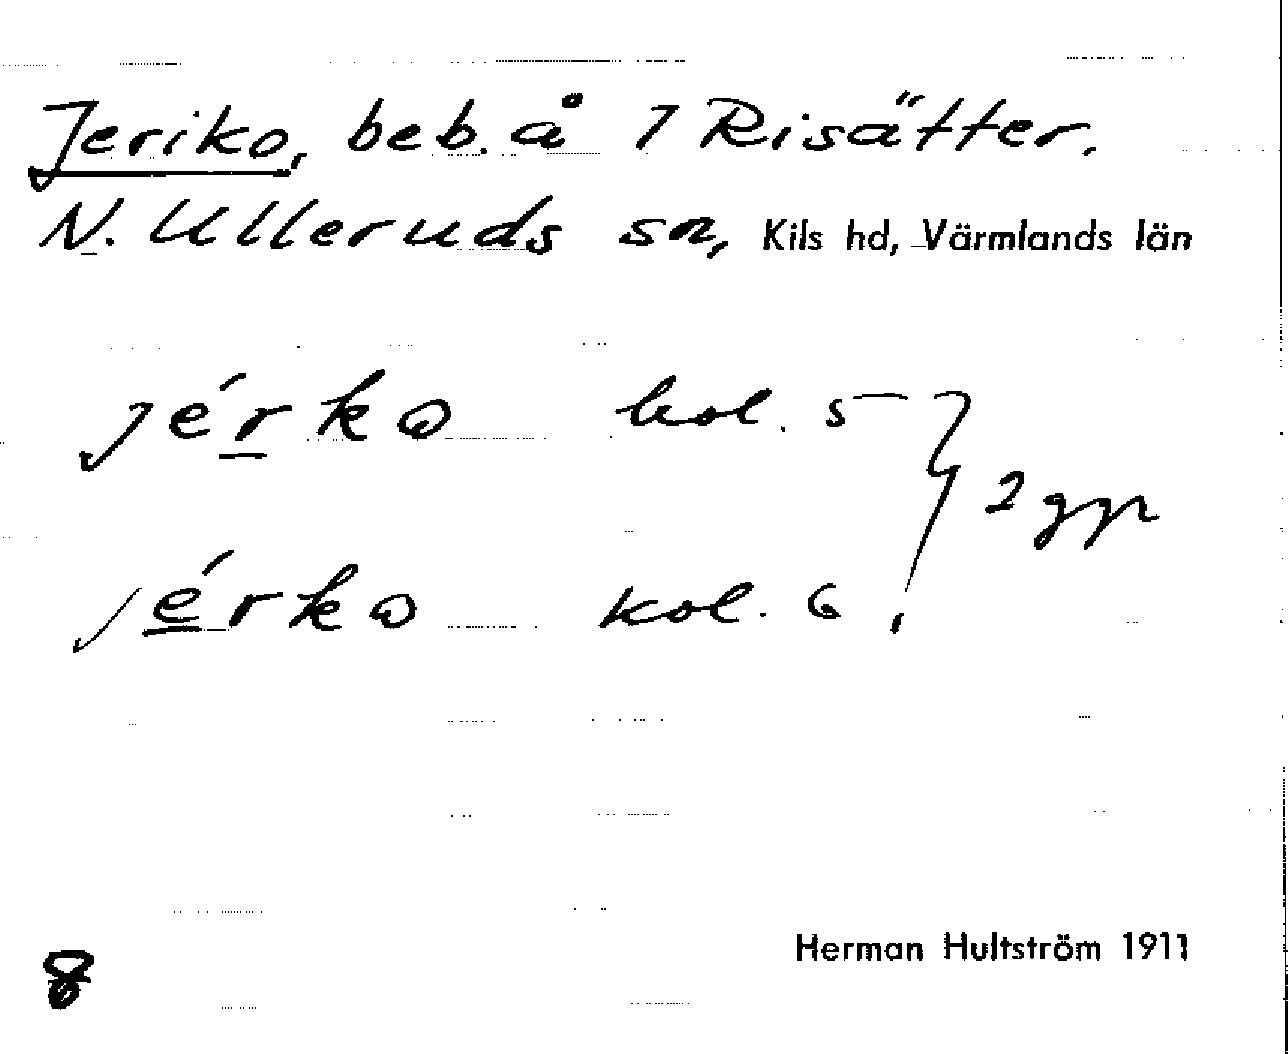 Jeriko, beb. å 1 Risätter.
N. Ulleruds sn, Kils hd, Värmlands län
jérko kol. 5
2 ggr
jérko kol. 6
Herman Hultström 1911
8